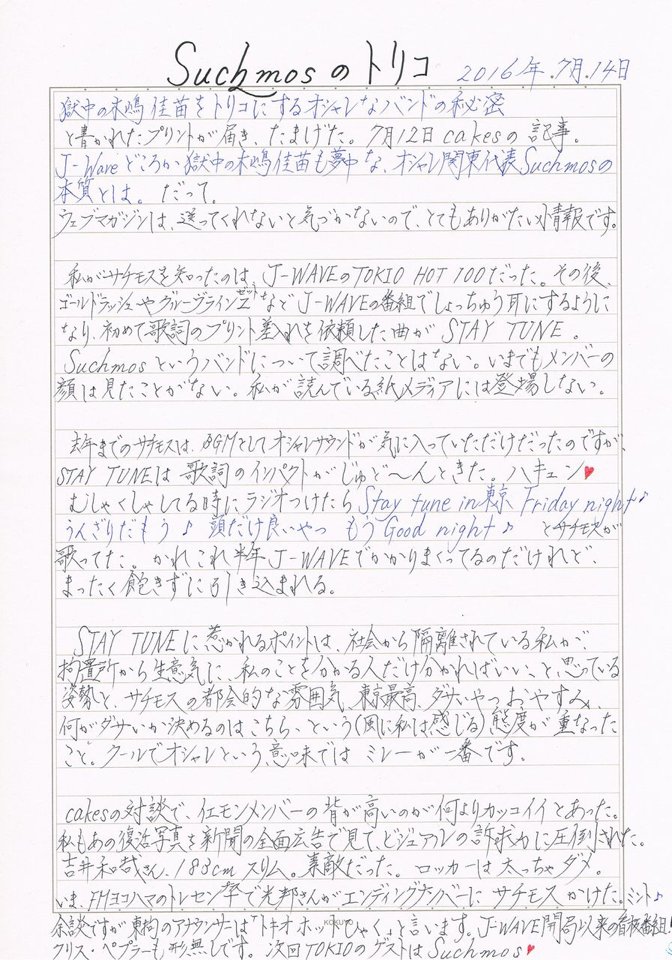 Suchmosのトリコ 2016年.7月.14日
獄中の木嶋佳苗をトリコにするオシャレなバンドの秘密
と書かれたプリントが届き、たまげた。7月12日cakesの記事。
J-Waveどころか獄中の木嶋佳苗も夢中な、オシャレ関東代表Suchmosの
本質とは。だって。
ウェブマガジンは、送ってくれないと気づかないので、とてもありがたい情報です。
私がサチモスを知ったのは、J-WAVEのTOKIO HOT 100だった。その後、
ゴールドラッシュやグルーブラインZなどJ-WAVEの番組でしょっちゅう耳にするように
なり、初めて歌詞のプリント差入れを依頼した曲がSTAY TUNE。
Suchmosというバンドについて調べたことはない。いまでもメンバーの
顔は見たことがない。私が読んでいる紙メディアには登場しない。
去年までのサチモスは、BGMとしてオシャレサウンドが気に入っていただけだったのですが、
STAY TUNEは歌詞のインパクトがじゅど〜んときた。ハキュン♥
むしゃくしゃしてる時にラジオつけたらStay tune in東京Friday night♪
うんざりだもう♪ 頭だけ良いやつ もうGood night♪ とサチモスが
歌ってた。かれこれ半年J-WAVEでかかりまくってるのだけれど、
まったく飽きずに引き込まれる。
STAY TUNEに惹かれるポイントは、社会から隔離されている私が、
拘置所から生意気に、私のことを分かる人だけ分かればいい、と思っている
姿勢と、サチモスの都会的な雰囲気、東京最高、ダサいやつおやすみ、
何がダサいか決めるのはこちら、という(風に私は感じる)態度が重なった
こと。クールでオシャレという意味ではミレーが一番くです。
cakesの対談で、イエモンメンバーの背が高いのが何よりカッコイイとあった。
私もあの復活写真を新聞の全面広告で見て、ビジュアルの訴求力に圧倒された。
吉井和哉さん、183cmスリム。素敵だった。ロッカーは太っちゃダメ。
いま、FMヨコハマのトレセン で光邦さんがエンディングナンバーにサチモスかけた。ミント♪
余談ですが東拘のアナウンサーは「トキオホットひゃく」と言います。J-WAVE開局以来の看板番組!
クリス・ペプラーも形無しです。次回TOKIOのゲストはSuchmos♥
KOKUYO